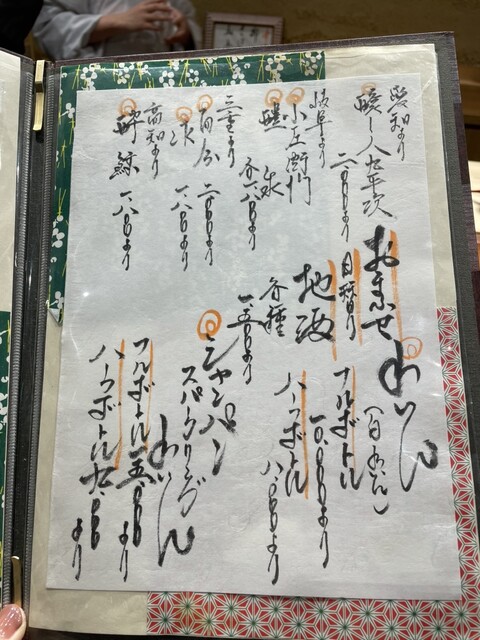 愛知より
醸し人九平次
二、〇〇〇より
岐阜より
小左衛門
醴泉
各一、八〇〇より
三重より
而今 二、〇〇〇より
作 一、八〇〇より
高知より
酔鯨 一、八〇〇より
おまかせ
日替り
地酒
各種
一、五〇〇より
わいん
フルボトル
一〇、〇〇〇より
ハーフボトル
八、〇〇〇より
シャンパン
スパークリング
わいん
フルボトル 一五、〇〇〇より
ハーフボトル 九、〇〇〇より